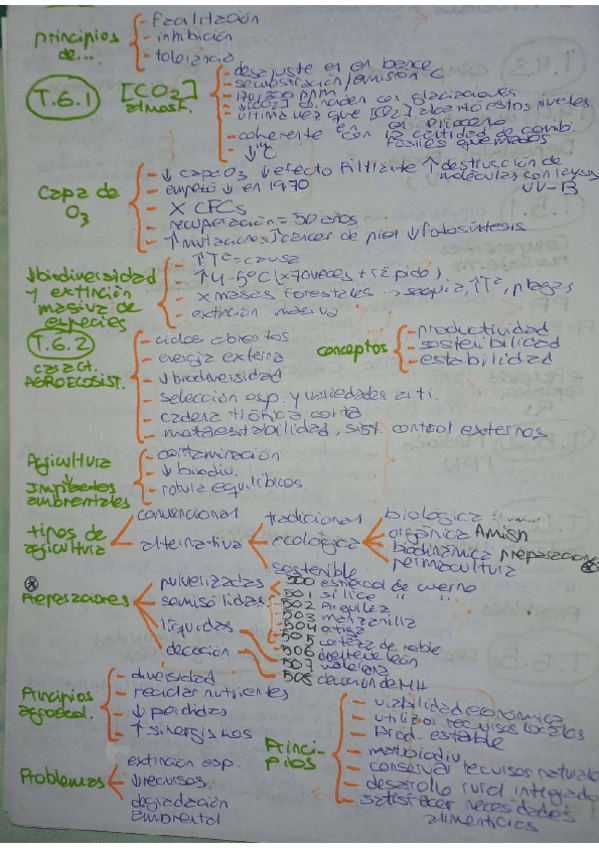 principios de...
- Facilitación
- inhibición
- tolerancia
T.6.1
[CO2] atmosf.
- desajuste en en balance
- secuestración/emisión C
- 170-300 ppm
- ↓[CO2] coinciden con glaciaciones
- última vez que [CO2] alcanzó estos niveles en el Plioceno
- coherente con la cantidad de comb. fósiles quemados
- ↓
Capa de O3
- ↓ capa O3 ↓ efecto filtrante ↑ destrucción de moléculas con rayos UV-B
- empezó ↓ en 1970
- X CFCs
- recuperación = 50 años
- ↑ mutaciones ↑ cáncer de piel ↓ fotosíntesis
↓ biodiversidad y extinción masiva de especies
- ↑Tª = causa
- ↑4-5ºC (x70 veces + rápido)
- X masas forestales → sequía, ↑Tª, plagas
- extinción masiva
T.6.2
caract. AGROECOSIST.
- ciclos abiertos
- energía externa
- ↓ biodiversidad
- selección esp. y variedades arti.
- cadena trófica corta
- metaestabilidad, sist. control externos
conceptos
- productividad
- sostenibilidad
- estabilidad
Agricultura
↓
Impactos ambientales
- contaminación
- ↓ biodiv.
- rotura equilibrios
tipos de agricultura
convencional
alternativa
tradicional
ecológica
sostenible
biológica
orgánica Amish
biodinámica preparaciones
permacultura
Preparaciones
pulverizadas
semisólidas
líquidas
decoción
500 estiércol de cuerno
501 sílice " "
502 Aquilea
503 manzanilla
504 ortiga
505 corteza de roble
506 diente de león
507 valeriana
508 decocción de
Principios agroecol.
- diversidad
- reciclar nutrientes
- ↓ pérdidas
- ↑ sinergismos
Principios
- viabilidad económica
- utilizar recursos locales
- Prod. estable
- mant biodiv
- conservar recursos naturale
- desarrollo rural integrado
- satisfacer necesidades alimenticias
Problemas
extinción esp.
↓ recursos
degradación ambiental